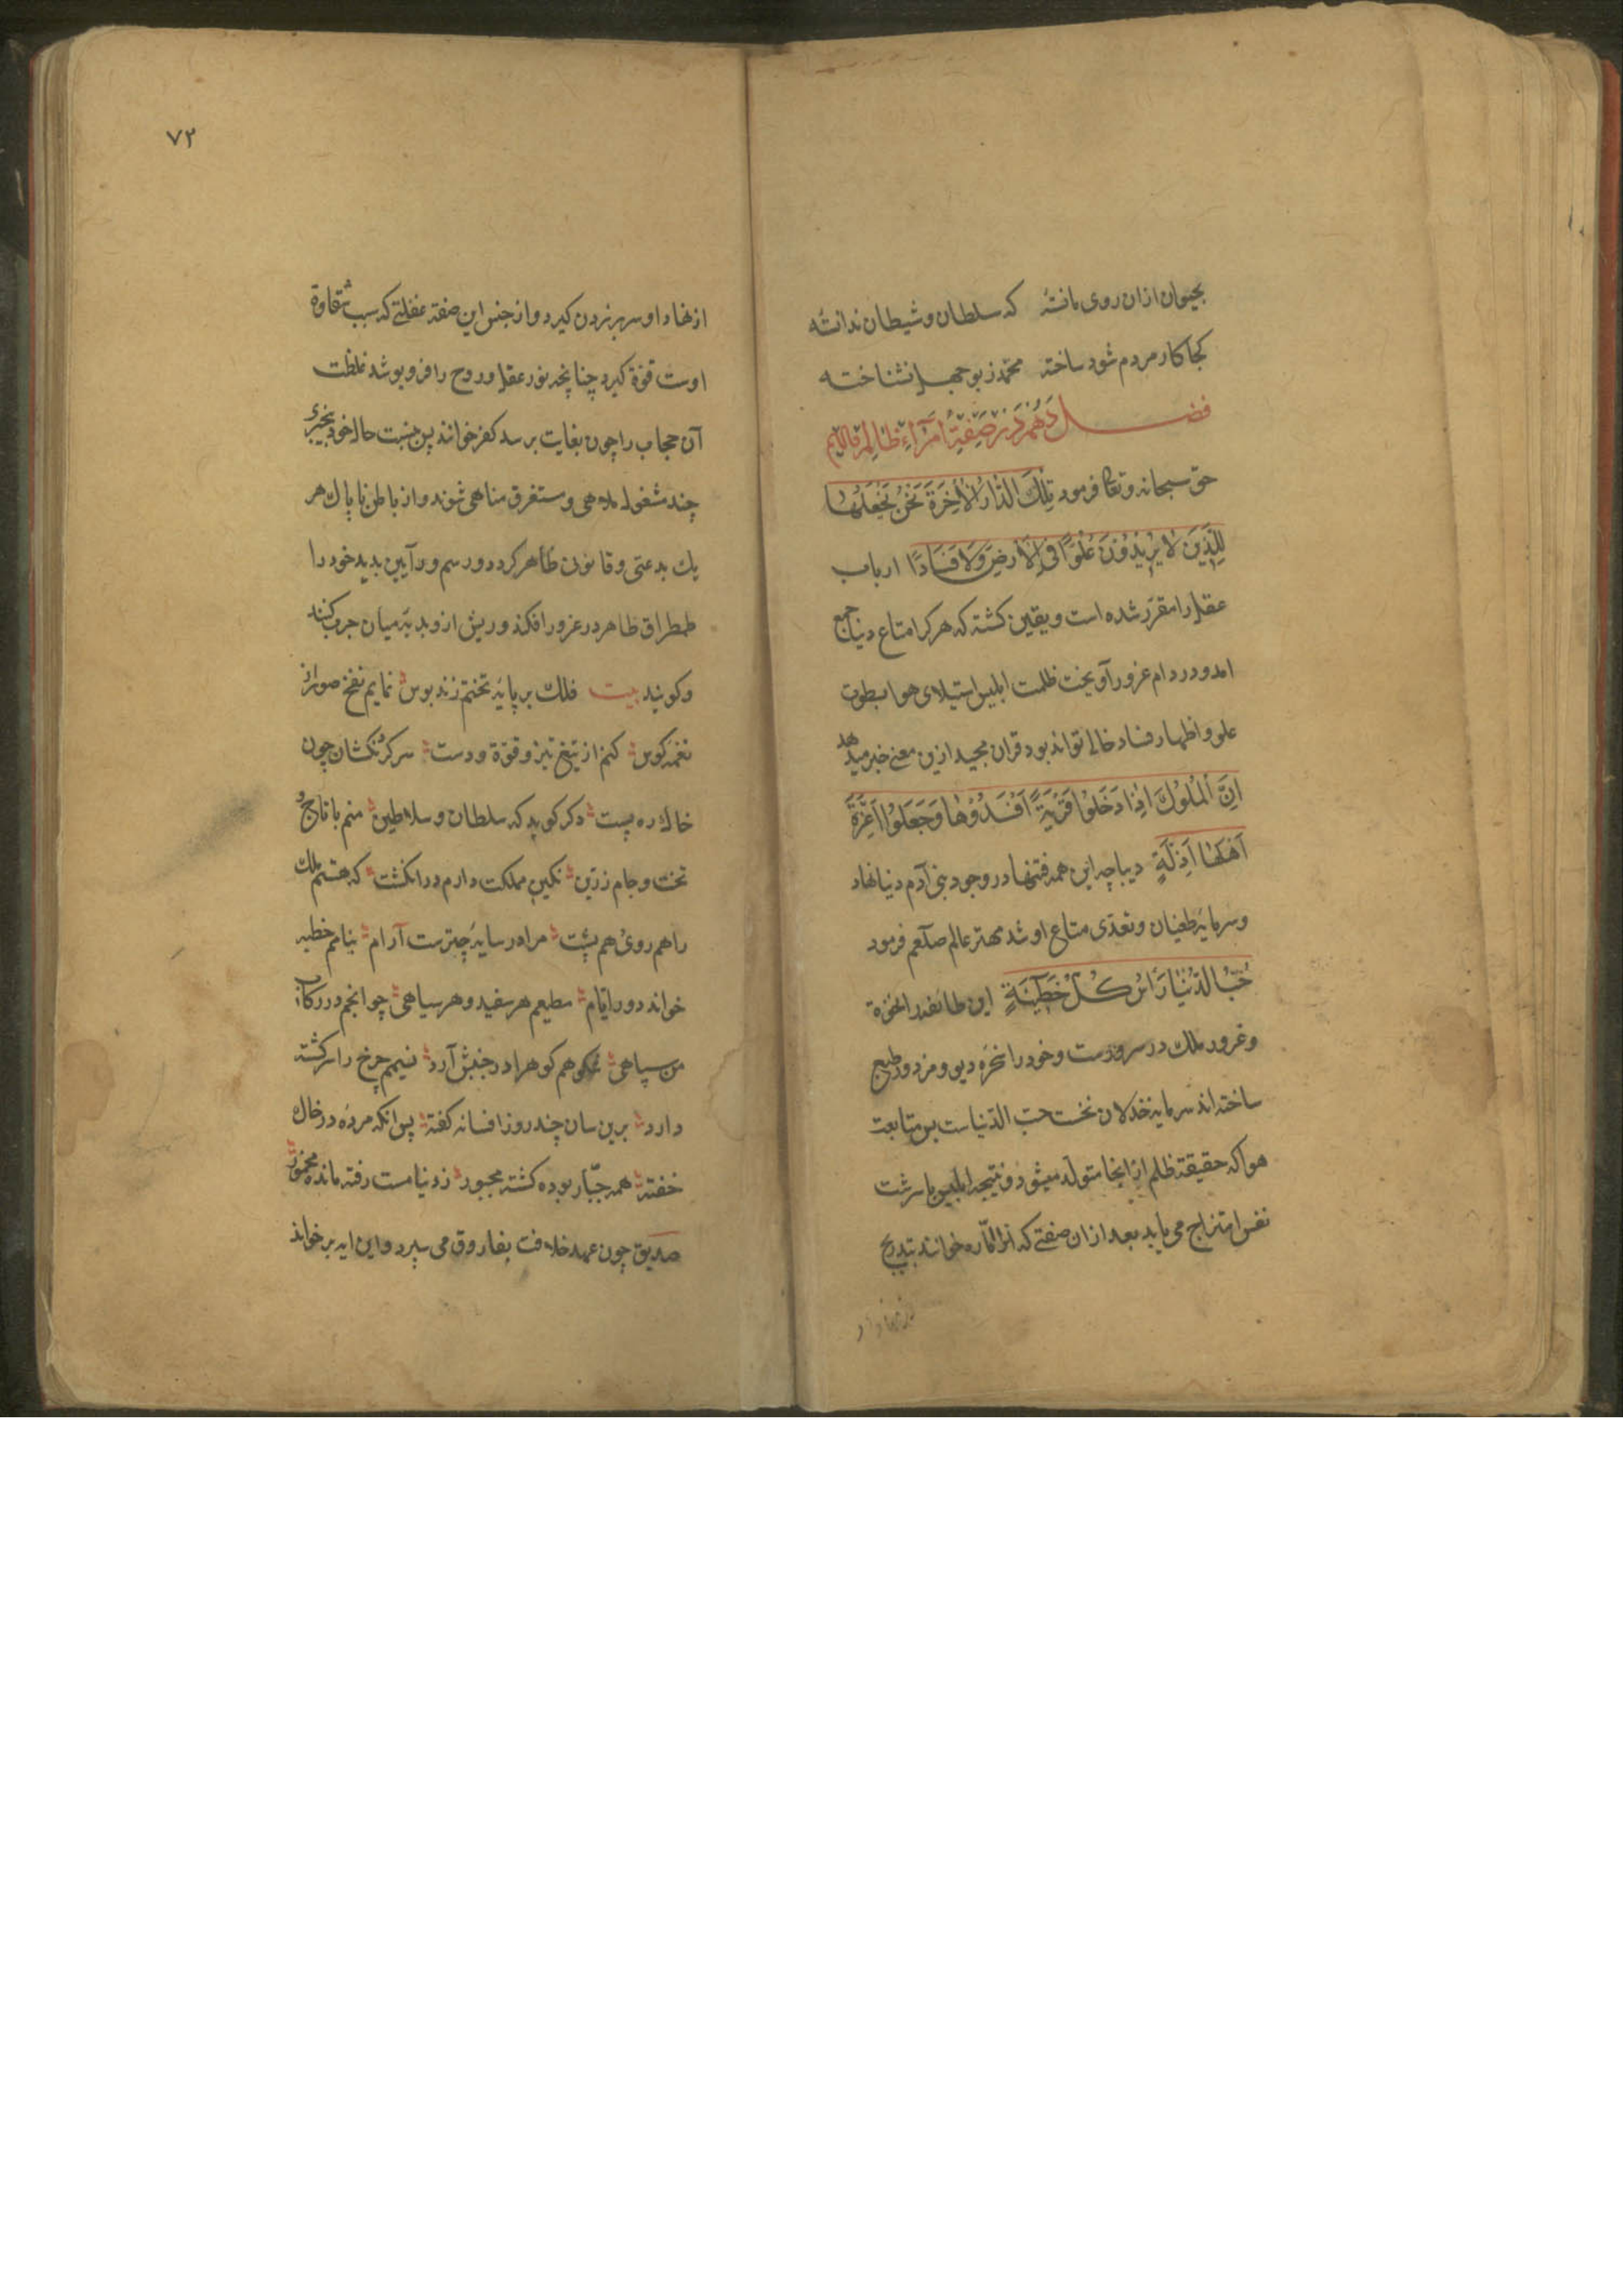 بحیوان ازان روی مانده که سلطان و شیطان ندانسته
کجا کار مردم شود ساخته محمد ز بوجهل نشناخته
فصل دهم در صفة امراء ظالم
حق سبحانه وتعا فرمود تِلْكَ الدَّارُ الْآخِرَةُ نَجْعَلُهَا
لِلَّذِينَ لَا يُرِيدُونَ عُلُوًّا فِي الْأَرْضِ وَلَا فَسَادًا ارباب
عقل را مقرر شده است و یقین کشته که هر کرا متاع دنیا جمع
امد و در دام غرور آویخت ظلمت ابلیس استیلای هوا بسطوت
علو و اظهار فساد خالی تواند بود قران مجید ازین معنی خبر میدهد
اِنَّ الْمُلُوكَ اِذَا دَخَلُوا قَرْيَةً اَفْسَدُوهَا وَجَعَلُوا اَعِزَّةَ
اَهْلِهَا اَذِلَّةً دیباچه این همه فتنها در وجود بنی آدم دنیا نهاد
و سرمایه طغیان و تعدی متاع او شد مهتر عالم صلعم فرمود
حُبُّ الدُّنْيَا رَأْسُ كُلِّ خَطِيئَةٍ این طائفه را
و غرور ملك در سرودست و خود را سخره دیو و مزدور طبع
ساخته اند سرمایه خذلان نخست حب الدنیاست پس متابعت
هوا که حقیقة ظلم از اینجا متولد میشود و نتیجه ابلیس با سرشت
نفس امتزاج می یابد بعد ازان صفتی که انرا اماره خوانند بتدریج
از نهاد او
۷۲
از نهاد او سر بر زدن کیرد و از جنس این صفة غفلتی که سبب شقاوة
اوست قوة کیرد چنانچه نور عقل و روح را فرو پوشد غلظت
آن حجاب را چون بغایت برسد کفر خوانند پس حال خود بیخبری
چند مشغول ملاهی و مستغرق مناهی شوند و از باطن ناپاك هر
یك بدعتی و قانون ظاهر کردد و رسم و آیین بدید خود را
طمطراق ظاهر در غرور افکند و ریش از و بدیه میان چرب کنند
و کویند بیت فلك بر پایه تختم زند بوس نمایم نفخ صور از
نغمه کوس کنم از تیغ تیز و قوة دست سر کردنکشان چون
خاك ره پست دکر کوید که سلطان و سلاطین منم با تاج و
تخت و جام زرین نکین مملکت دارم در انکشت که هستم ملك
را هم روی هم پشت مرا در سایه چترست آرام بنامم خطبه
خواند دور ایام مطیعم هر سفید و هر سیاهی چو انجم در رکاب
من سپاهی کوه را در جنبش آرد نسیم چرخ را سرکشته
دارد برین سان چند روز افسانه کفته پس انکه مرده در خاك
خفته همه جبار بوده کشته مجبور ز دنیا مست رفته مانده مخمور
صدیق چون عهد خلافت بفاروق می سپرد و این ایه بر خواند